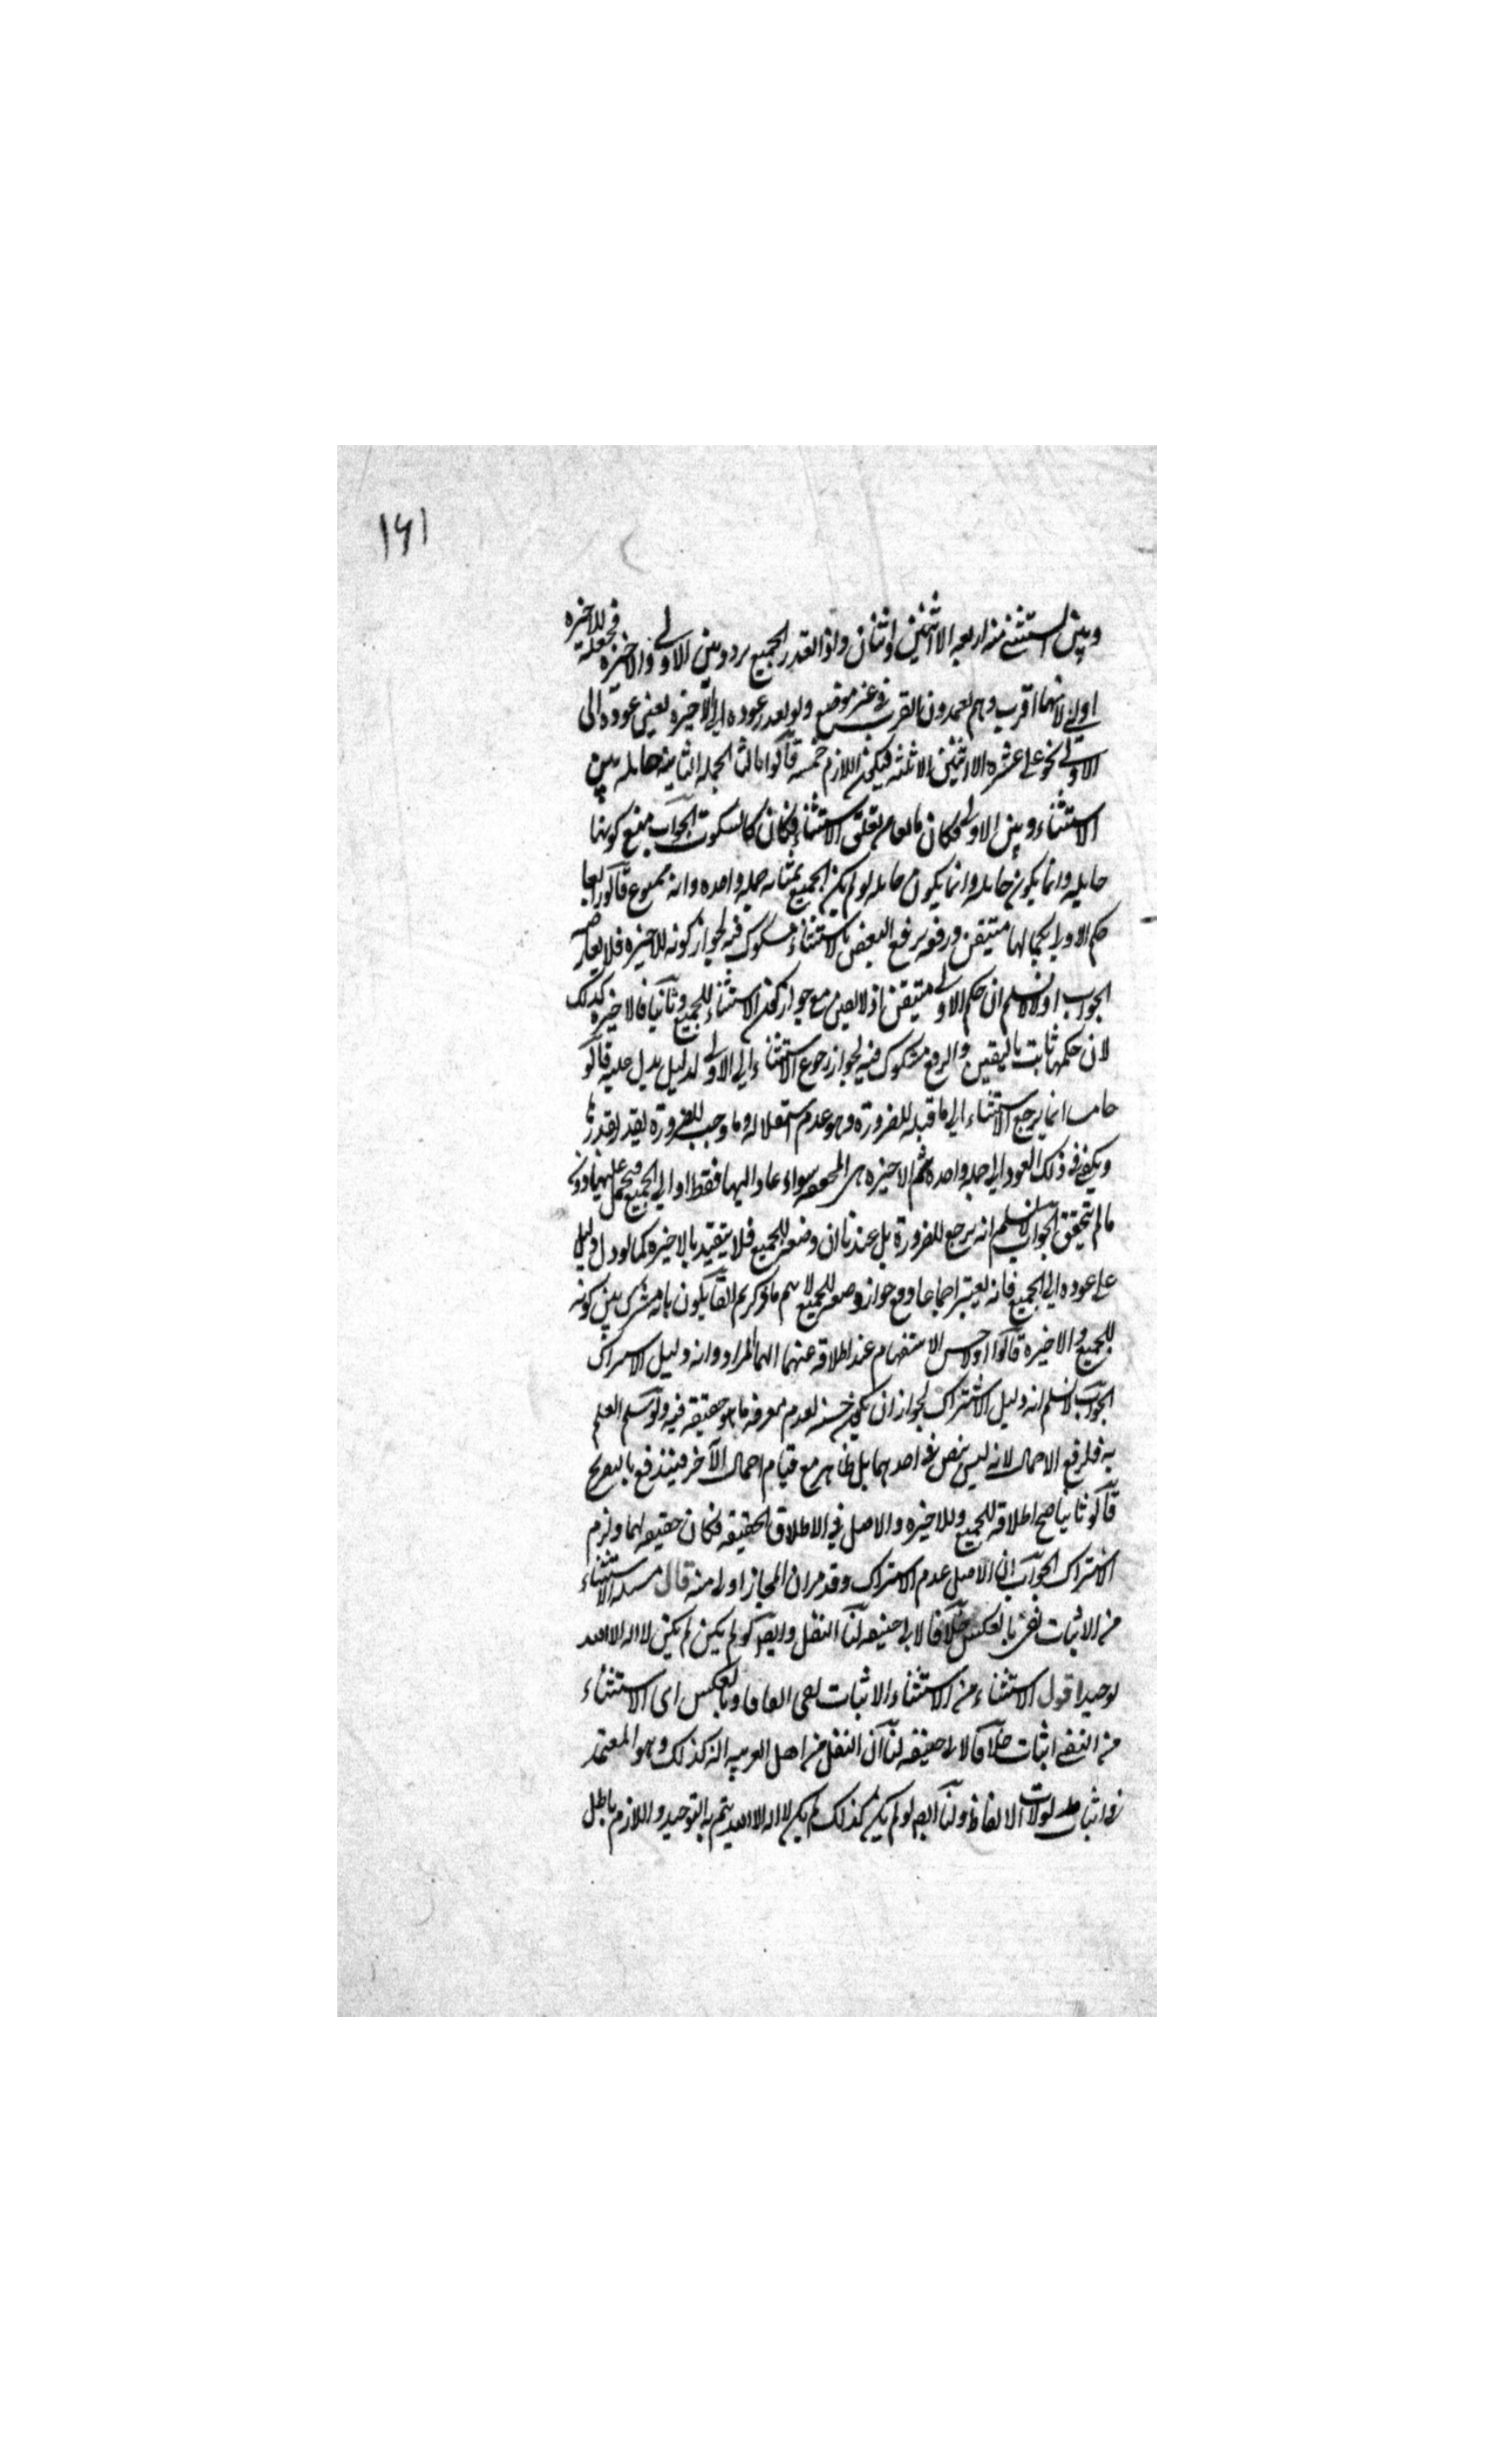 ١٦١
وبين المستثنى منه اربعة الا اثنين واثنان واذا تعذر الجميع تردد بين الاولى والاخيرة فجعله للاخيرة
اولى لانهما اقرب وهم يعتمدون القرب في غير موضع ولو تعذر عوده الى الاخيرة تعين عوده الى
الاولى نحو على عشرة الا اثنين الا ثلثة فيكون اللازم خمسة قالوا ثالثا الجملة الثانية حايلة بين
الاستثناء وبين الاولى فكان مانعا من تعلق الاستثناء فكان كالسكوت الجواب منع كونها
حايلة وانما يكون حايلة وانما يكون حايلة لو لم يكن الجميع بمثابة جملة واحدة وانه ممنوع قالوا رابعا
حكم الاولى بكمالها متيقن ورفعه برفع البعض بالاستثناء مشكوك فيه لجواز كونه للاخيرة فلا يعارض
الجواب اولا لا نسلم ان حكم الاولى متيقن اذ لا يقين مع جواز كون الاستثناء للجميع وثانيا فالاخيرة كذلك
لان حكمها ثابت باليقين والرفع مشكوك فيه لجواز رجوع الاستثناء الى الاولى لدليل يدل عليه قالوا
خامسا انما يرجع الاستثناء الى ما قبله للضرورة وهو عدم استقلاله وما وجب للضرورة يقدر بقدرها
ويكفي في ذلك العود الى جملة واحدة ثم الاخيرة هي المحققة سواء عاد اليها فقط او الى الجميع فيحمل عليها دون
ما لم يتحقق الجواب لا نسلم انه يرجع للضرورة بل عندنا ان وضعه للجميع فلا يتقيد بالاخيرة كما لو دل دليل
على عوده الى الجميع فانه يعتبر اجماعا ومع جواز وضعه للجميع لا يتم ما ذكرتم القايلون بانه مشترك بين كونه
للجميع والاخيرة قالوا اولا حسن الاستفهام عند اطلاقه عنهما ايهما المراد وانه دليل الاشتراك
الجواب لا نسلم انه دليل الاشتراك لجواز ان يكون حسنه لعدم معرفة ما هو حقيقة فيه ولو سلم العلم
به فلرفع الاحتمال لانه ليس بنص في احدهما بل ظاهر مع قيام احتمال الآخر فيندفع بالتصريح
قالوا ثانيا صح اطلاقه للجميع وللاخيرة والاصل في الاطلاق الحقيقة فكان حقيقة لهما ولزم
الاشتراك الجواب ان الاصل عدم الاشتراك وقد مر ان المجاز اولى منه قال مسئلة الاستثناء
من الاثبات نفى بالعكس خلافا لابى حنيفه لنا النقل وايضا لو لم يكن لم يكن لا اله الا الله
توحيدا اقول الاستثناء من الاستثناء والاثبات نفى اتفاقا وبالعكس اى الاستثناء
من النفى اثبات خلافا لابى حنيفه لنا ان النقل من اهل العربيه انه كذلك وهو المعتمد
في اثبات مدلولات الالفاظ ولنا ايضا لو لم يكن كذلك لم يكن لا اله الا الله يتم به التوحيد واللازم باطل